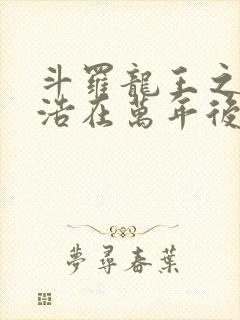 斗羅龍王之
浩在萬年後
夢尋春葉